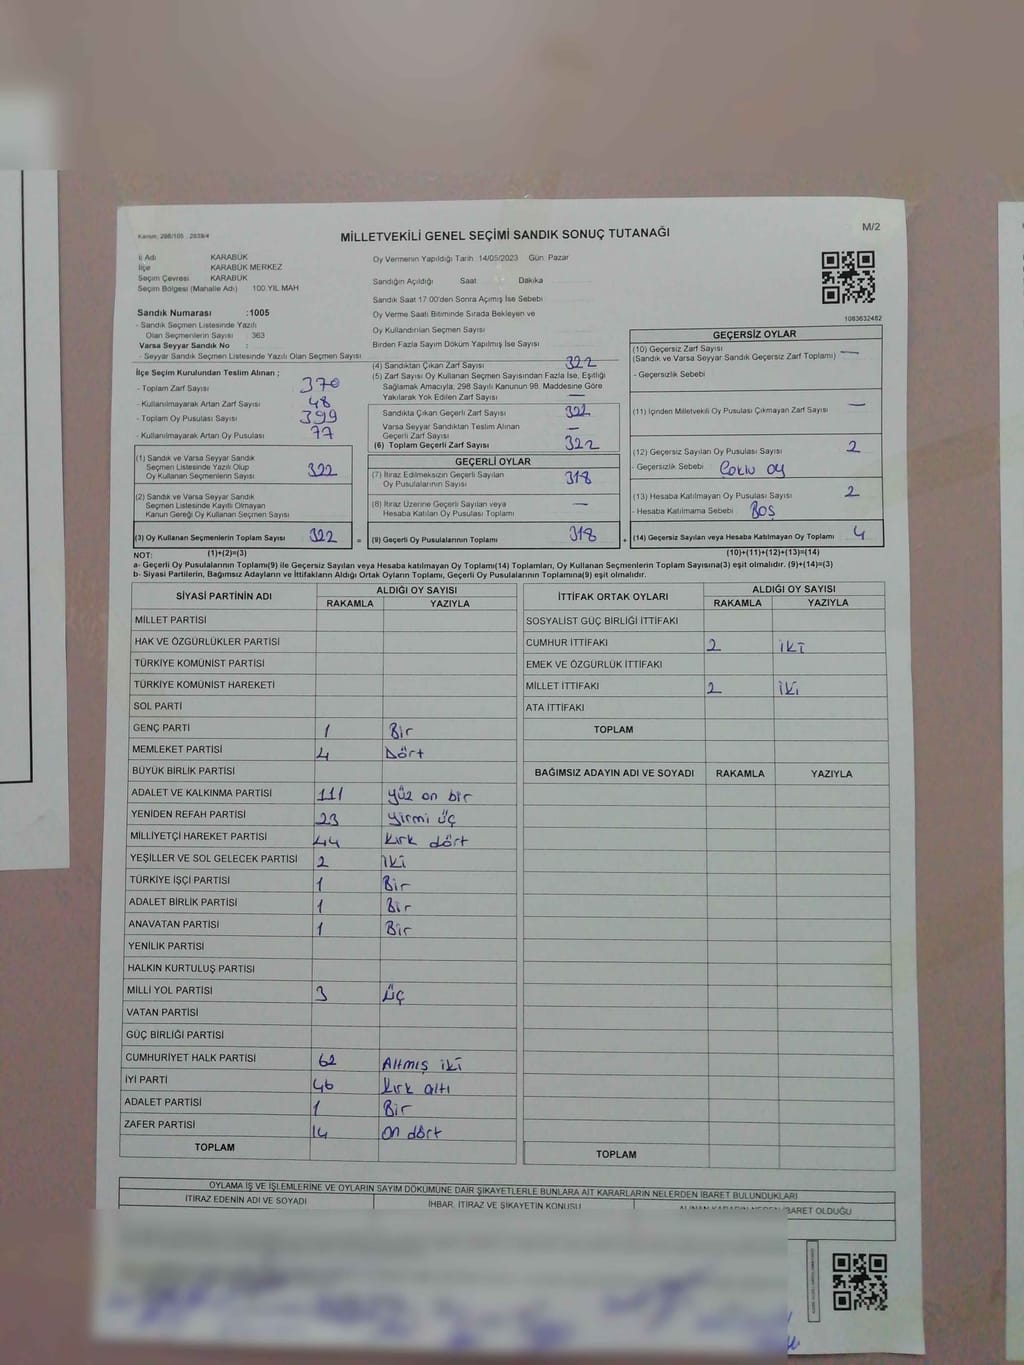 Kanun: 298/105 , 2839/4
M/2
MİLLETVEKİLİ GENEL SEÇİMİ SANDIK SONUÇ TUTANAĞI
İl Adı KARABÜK
İlçe KARABÜK MERKEZ
Seçim Çevresi KARABÜK
Seçim Bölgesi (Mahalle Adı) 100.YIL MAH
Oy Vermenin Yapıldığı Tarih 14/05/2023 Gün: Pazar
Sandığın Açıldığı Saat Dakika
Sandık Saat 17:00'den Sonra Açımış İse Sebebi
Sandık Numarası :1005
- Sandık Seçmen Listesinde Yazılı
Olan Seçmenlerin Sayısı : 363
Varsa Seyyar Sandık No :
- Seyyar Sandık Seçmen Listesinde Yazılı Olan Seçmen Sayısı
Oy Verme Saati Bitiminde Sırada Bekleyen ve
Oy Kullandırılan Seçmen Sayısı
Birden Fazla Sayım Döküm Yapılmış İse Sayısı
1083632482
İlçe Seçim Kurulundan Teslim Alınan ;
- Toplam Zarf Sayısı 370
- Kullanılmayarak Artan Zarf Sayısı 48
- Toplam Oy Pusulası Sayısı 399
- Kullanılmayarak Artan Oy Pusulası 77
(1) Sandık ve Varsa Seyyar Sandık
Seçmen Listesinde Yazılı Olup
Oy Kullanan Seçmenlerin Sayısı 322
(2) Sandık ve Varsa Seyyar Sandık
Seçmen Listesinde Kayıtlı Olmayan
Kanun Gereği Oy Kullanan Seçmen Sayısı
(3) Oy Kullanan Seçmenlerin Toplam Sayısı 322 =
(4) Sandıktan Çıkan Zarf Sayısı 322
(5) Zarf Sayısı Oy Kullanan Seçmen Sayısından Fazla İse, Eşitliği
Sağlamak Amacıyla, 298 Sayılı Kanunun 98. Maddesine Göre
Yakılarak Yok Edilen Zarf Sayısı —
Sandıkta Çıkan Geçerli Zarf Sayısı 322
Varsa Seyyar Sandıktan Teslim Alınan
Geçerli Zarf Sayısı —
(6) Toplam Geçerli Zarf Sayısı 322
GEÇERLİ OYLAR
(7) İtiraz Edilmeksizin Geçerli Sayılan
Oy Pusulalarının Sayısı 318
(8) İtiraz Üzerine Geçerli Sayılan veya
Hesaba Katılan Oy Pusulası Toplamı —
(9) Geçerli Oy Pusulalarının Toplamı 318 +
GEÇERSİZ OYLAR
(10) Geçersiz Zarf Sayısı
(Sandık ve Varsa Seyyar Sandık Geçersiz Zarf Toplamı) —
- Geçersizlik Sebebi
(11) İçinden Milletvekili Oy Pusulası Çıkmayan Zarf Sayısı —
(12) Geçersiz Sayılan Oy Pusulası Sayısı 2
- Geçersizlik Sebebi Çoklu oy
(13) Hesaba Katılmayan Oy Pusulası Sayısı 2
- Hesaba Katılmama Sebebi BOŞ
(14) Geçersiz Sayılan veya Hesaba Katılmayan Oy Toplamı 4
NOT: (1)+(2)=(3) (10)+(11)+(12)+(13)=(14)
a- Geçerli Oy Pusulalarının Toplamı(9) ile Geçersiz Sayılan veya Hesaba katılmayan Oy Toplamı(14) Toplamları, Oy Kullanan Seçmenlerin Toplam Sayısına(3) eşit olmalıdır. (9)+(14)=(3)
b- Siyasi Partilerin, Bağımsız Adayların ve İttifakların Aldığı Ortak Oyların Toplamı, Geçerli Oy Pusulalarının Toplamına(9) eşit olmalıdır.
SİYASİ PARTİNİN ADI ALDIĞI OY SAYISI
RAKAMLA YAZIYLA
MİLLET PARTİSİ
HAK VE ÖZGÜRLÜKLER PARTİSİ
TÜRKİYE KOMÜNİST PARTİSİ
TÜRKİYE KOMÜNİST HAREKETİ
SOL PARTİ
GENÇ PARTİ 1 Bir
MEMLEKET PARTİSİ 4 Dört
BÜYÜK BİRLİK PARTİSİ
ADALET VE KALKINMA PARTİSİ 111 yüz on bir
YENİDEN REFAH PARTİSİ 23 yirmi üç
MİLLİYETÇİ HAREKET PARTİSİ 44 kırk dört
YEŞİLLER VE SOL GELECEK PARTİSİ 2 İki
TÜRKİYE İŞÇİ PARTİSİ 1 Bir
ADALET BİRLİK PARTİSİ 1 Bir
ANAVATAN PARTİSİ 1 Bir
YENİLİK PARTİSİ
HALKIN KURTULUŞ PARTİSİ
MİLLİ YOL PARTİSİ 3 üç
VATAN PARTİSİ
GÜÇ BİRLİĞİ PARTİSİ
CUMHURİYET HALK PARTİSİ 62 Altmış iki
İYİ PARTİ 46 kırk altı
ADALET PARTİSİ 1 Bir
ZAFER PARTİSİ 14 on dört
TOPLAM
İTTİFAK ORTAK OYLARI ALDIĞI OY SAYISI
RAKAMLA YAZIYLA
SOSYALİST GÜÇ BİRLİĞİ İTTİFAKI
CUMHUR İTTİFAKI 2 iki
EMEK VE ÖZGÜRLÜK İTTİFAKI
MİLLET İTTİFAKI 2 iki
ATA İTTİFAKI
TOPLAM
BAĞIMSIZ ADAYIN ADI VE SOYADI RAKAMLA YAZIYLA
TOPLAM
OYLAMA İŞ VE İŞLEMLERİNE VE OYLARIN SAYIM DÖKÜMÜNE DAİR ŞİKAYETLERLE BUNLARA AİT KARARLARIN NELERDEN İBARET BULUNDUKLARI
İTİRAZ EDENİN ADI VE SOYADI İHBAR, İTİRAZ VE ŞİKAYETİN KONUSU ALINAN KARARIN NEDEN İBARET OLDUĞU